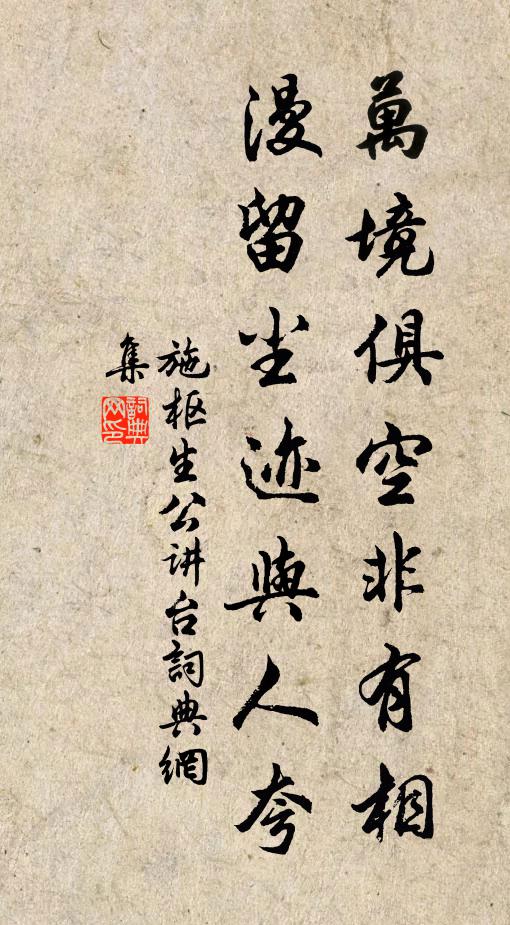 萬境俱空非有相
漫留尘迹與人夸
施枢生公讲台詞典網
集
詞典网印